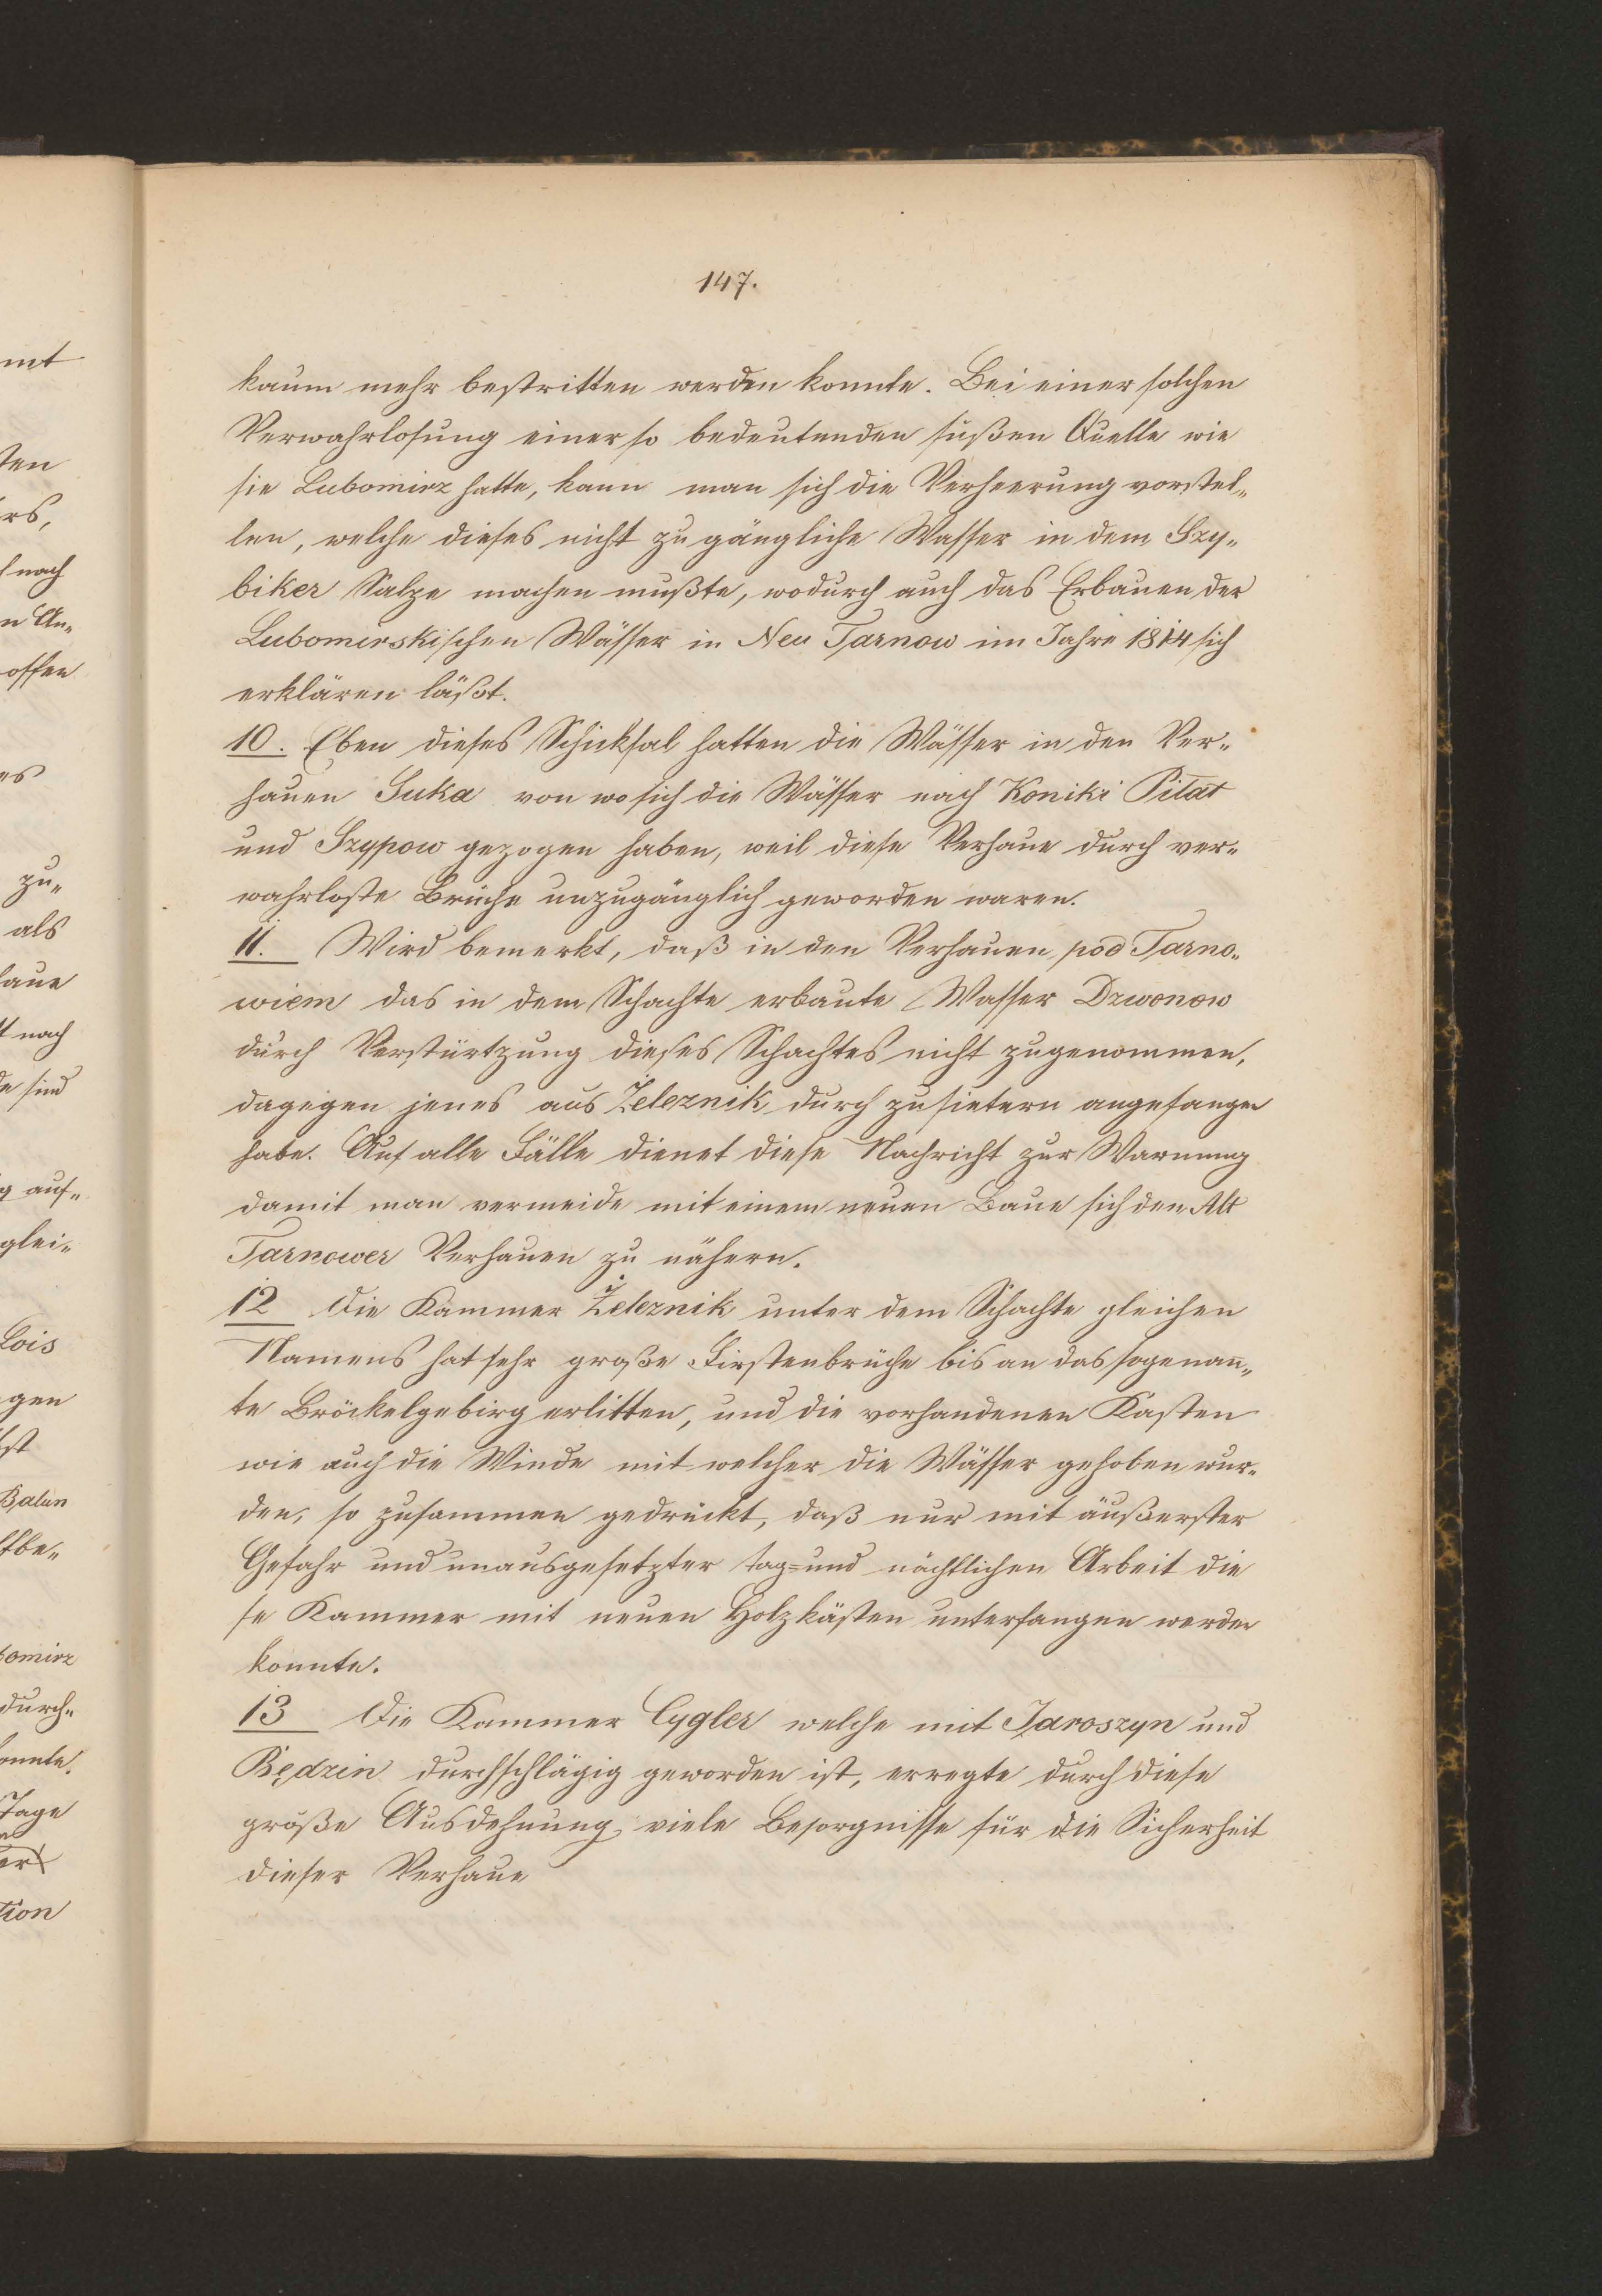 147.
kaum mehr bestritten werden konnte. Bei einer solchen
Verwahrlosung einer so bedeutenden süßen Quelle wie
sie Lubomirz hatte, kann man sich die Verheerung vorstel-
len, welche dieses nicht zugängliche Wasser in dem Szy-
biker Salze machen mußte, wodurch auch das Erbauen der
Lubomirskischen Wässer in Neu Tarnow im Jahre 1814 sich
erklären läßt.
10. Eben dieses Schicksal hatten die Wässer in den Ver-
hauen Suka von wo sich die Wässer nach Koniki Pilat
und Szypow gezogen haben, weil diese Verhaue durch ver-
wahrloste Brüche unzugänglich geworden waren.
11. Wird bemerkt, daß in den Verhauen pod Tarno-
wiem das in dem Schachte erbaute Wasser Dzwonow
durch Verstürtzung dieses Schachtes nicht zugenommen,
dagegen jenes aus Żeleznik durch zusietern angefangen
habe. Auf alle Fälle dienet diese Nachricht zur Warnung
damit man vermeide mit einem neuen Baue sich den Alt
Tarnower Verhauen zu nähern.
12 Die Kammer Żeleznik unter dem Schachte gleichen
Namens hat sehr große Firstenbrüche bis an das sogenan̄-
te Bröckelgebirg erlitten, und die vorhandenen Kasten
wie auch die Winde mit welcher die Wässer gehoben wur-
den, so zusammen gedrückt, daß nur mit äußerster
Gefahr und unausgesetzter tag= und nächtlichen Arbeit die
se Kammer mit neuen Holzkästen unterfangen werden
konnte.
13 Die Kammer Cygler welche mit Jaroszyn und
Będzin durchschlägig geworden ist, erregte durch diese
große Ausdehnung, viele Besorgnisse für die Sicherheit
dieser Verhaue